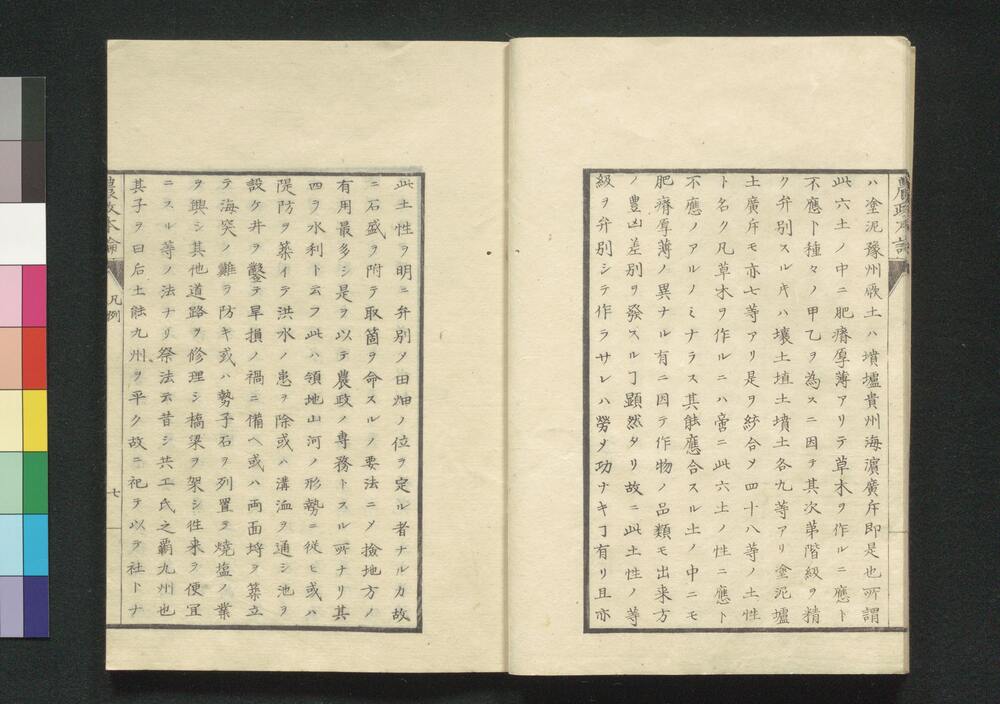 農政本論
ハ塗泥豫州厥土ハ墳壚貴州海濱廣斥即是也所謂
此六土ノ中ニ肥瘠厚薄アリテ草木ヲ作ルニ應ト
不應ト種々ノ甲乙ヲ為スニ因テ其次第階級ヲ精
ク弁別スル𪜈ハ壤土埴土墳土各九等アリ塗泥壚
土廣斥モ亦七等アリ是ヲ統合メ四十八等ノ土性
ト名ク凡草木ヲ作ルニハ啻ニ此六土ノ性ニ應ト
不應ノアルノミナラス其能應合スル土ノ中ニモ
肥瘠厚薄ノ異ナル有ニ因テ作物ノ品類モ出来方
ノ豊凶差別ヲ發スルヿ顕然タリ故ニ此土性ノ等
級ヲ弁別シテ作ラサレハ勞メ功ナキヿ有リ且亦
此土性ヲ明ニ弁別メ田畑ノ位ヲ定ル者ナルカ故
ニ石盛ヲ附テ取箇ヲ命スルノ要法ニメ撿地方ノ
有用最多シ是ヲ以テ農政ノ専務トスル所ナリ其
四ヲ水利ト云フ此ハ領地山河ノ形勢ニ従ヒ或ハ
隄防ヲ築イテ洪水ノ患ヲ除或ハ溝洫ヲ通シ池ヲ
設ケ井ヲ鑿テ旱損ノ禍ニ備ヘ或ハ両面埒ヲ築立
テ海突ノ難ヲ防キ或ハ勢子石ヲ列置テ燒塩ノ業
ヲ興シ其他道路ヲ修理シ橋梁ヲ架シ徃来ヲ便宜
ニスル等ノ法ナリ祭法云昔シ共工氏之覇九州也
其子ヲ曰后土能九州ヲ平ク故ニ祀テ以テ社トナ
農政本論 凡例 七